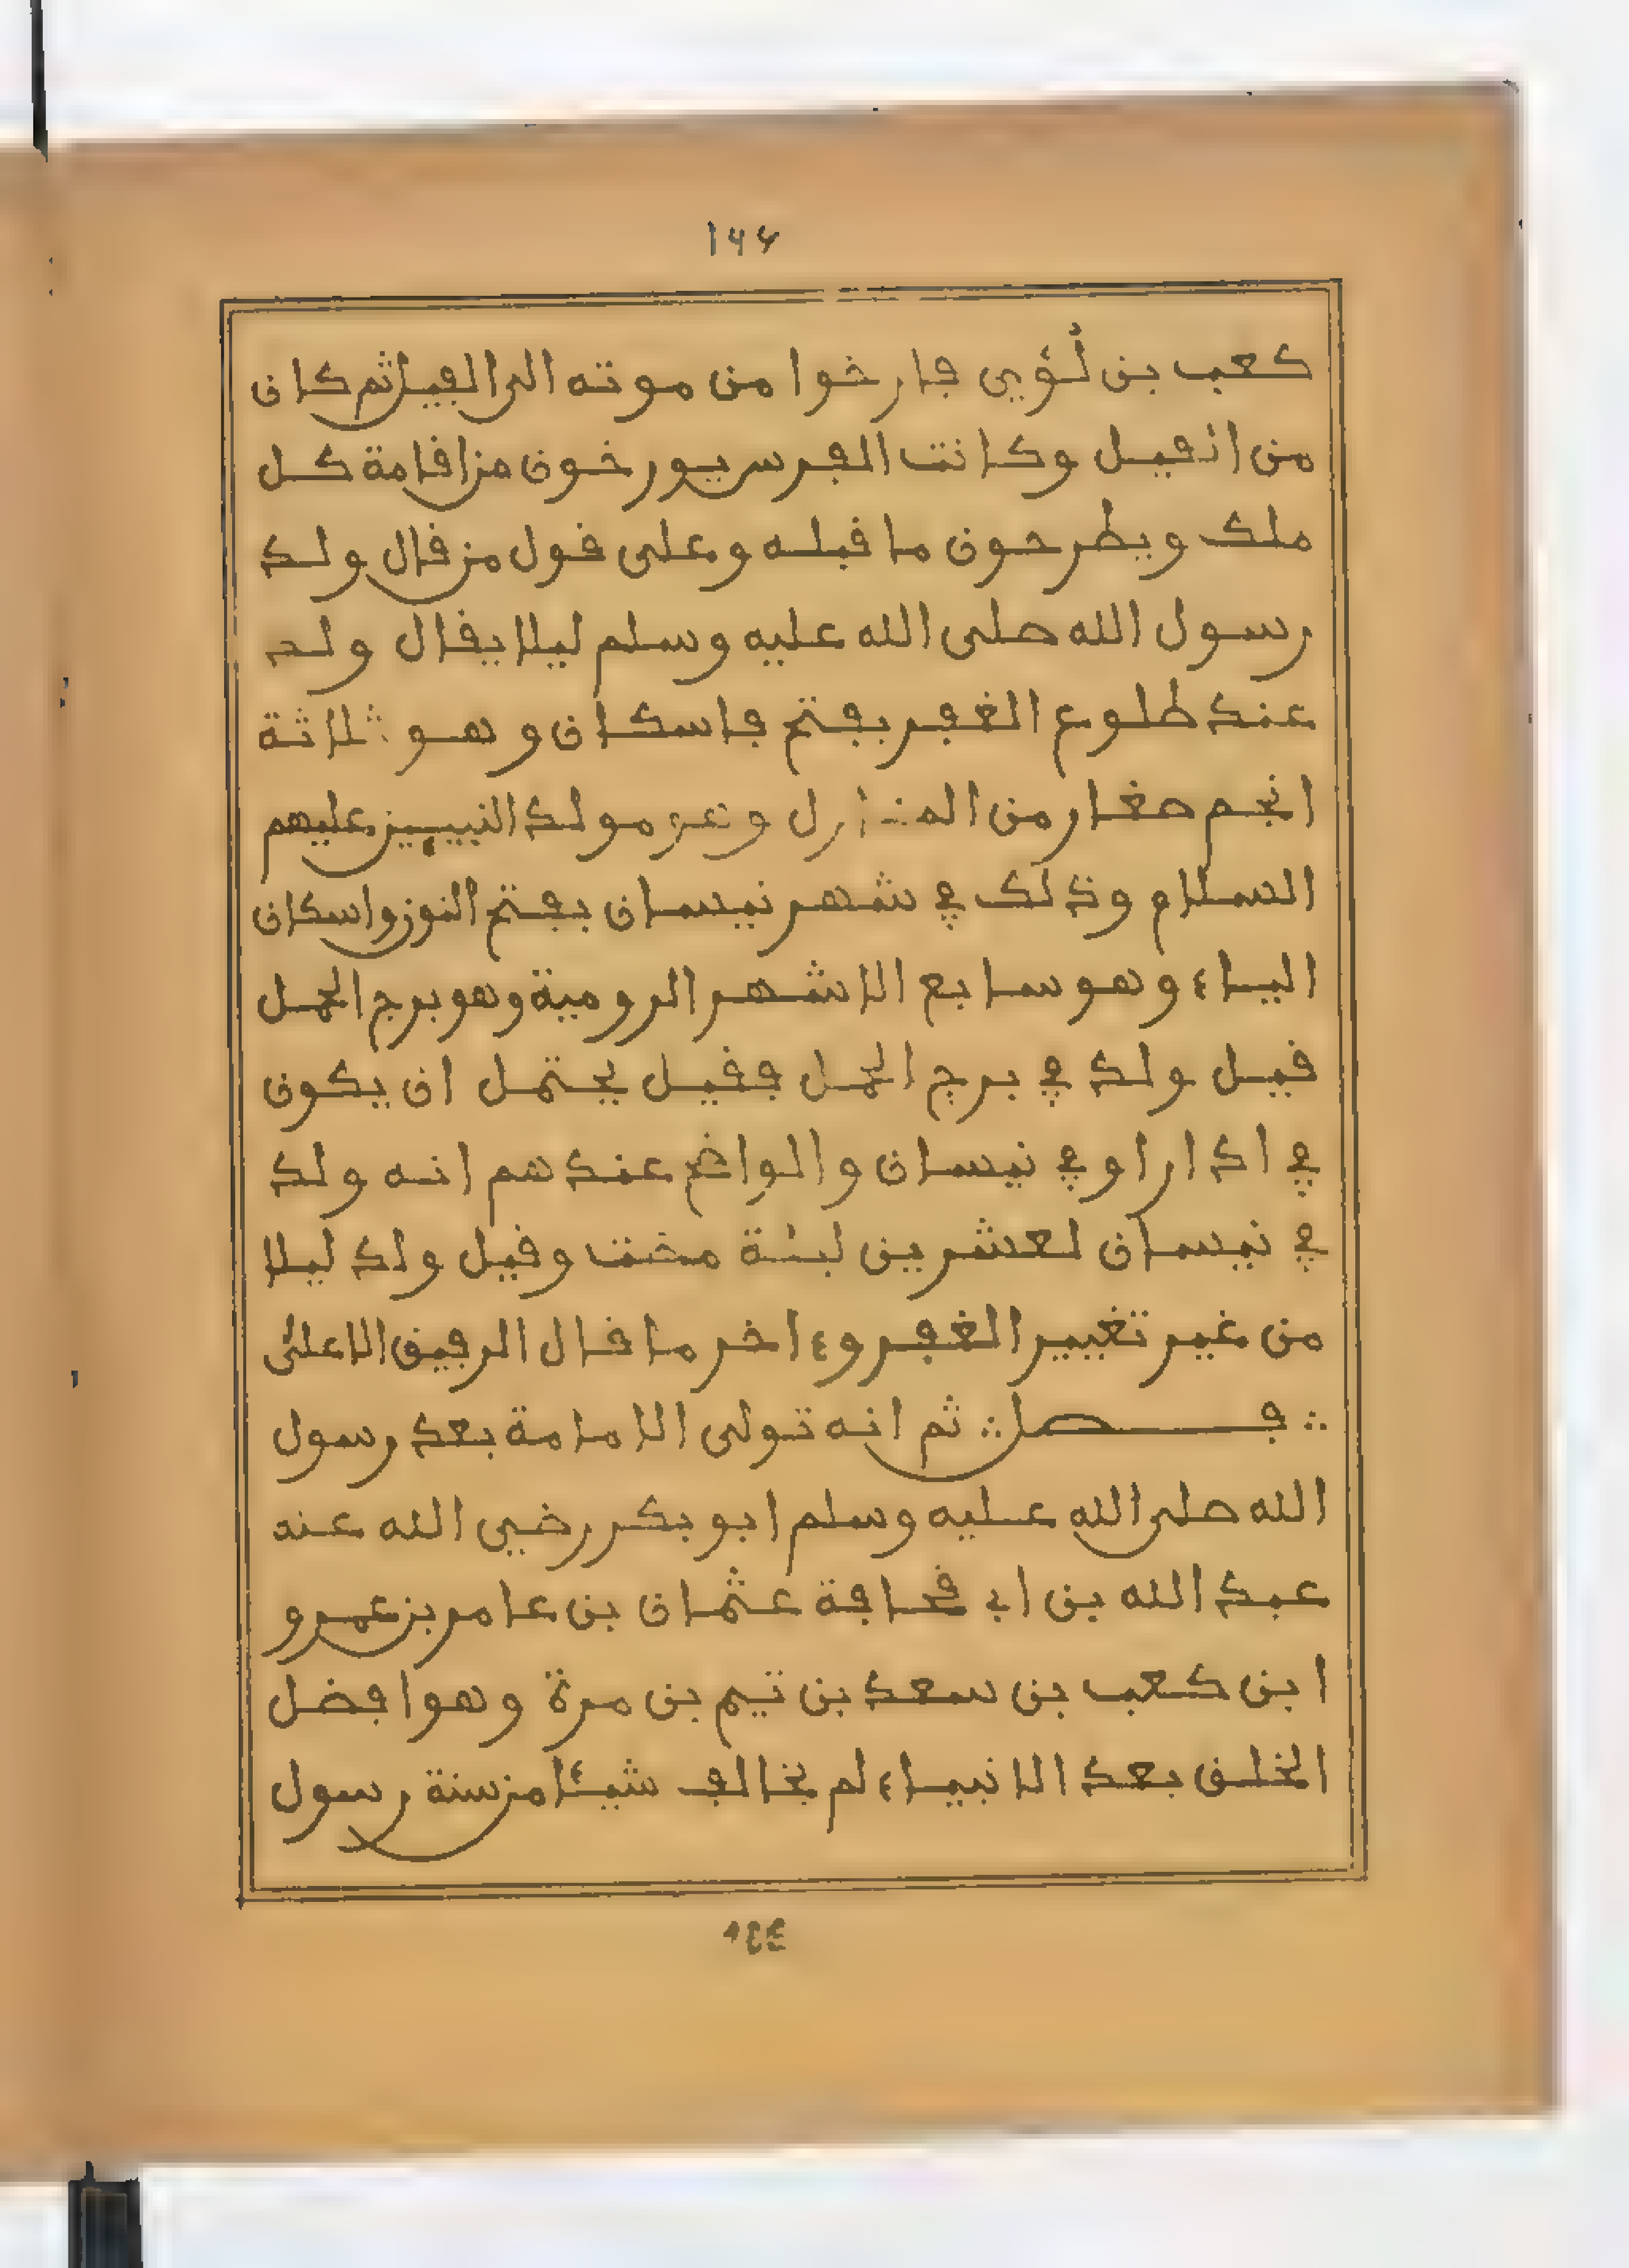 ١٩٩
كعب بن لُؤي فارخوا من موته الى الفيل ثم كان
من الفيل وكانت الفرس يورخون من اقامة كل
ملك ويطرحون ما قبله وعلى قول من قال ولد
رسول الله صلى الله عليه وسلم ليلا يقال ولد
عند طلوع الغفر بفتح فاسكان وهو ثلاثة
انجم صغار من المنازل وهو مولد النبيين عليهم
السلام وذلك في شهر نيسان بفتح النون واسكان
الياء وهو سابع الاشهر الرومية وهو برج الحمل
قيل ولد في برج الحمل فقيل يحتمل ان يكون
في اذار او في نيسان والواضح عندهم انه ولد
في نيسان لعشرين ليلة مضت وقيل ولد ليلا
من غير تغيير الغفر وءاخر ما قال الرفيق الاعلى
∴ فصل ∴ ثم انه تولى الامامة بعد رسول
الله صلى الله عليه وسلم ابو بكر رضي الله عنه
عبد الله بن ابي قحافة عثمان بن عامر بن عمرو
ابن كعب بن سعد بن تيم بن مرة وهو افضل
الخلق بعد الانبياء لم يخالف شيئا من سنة رسول